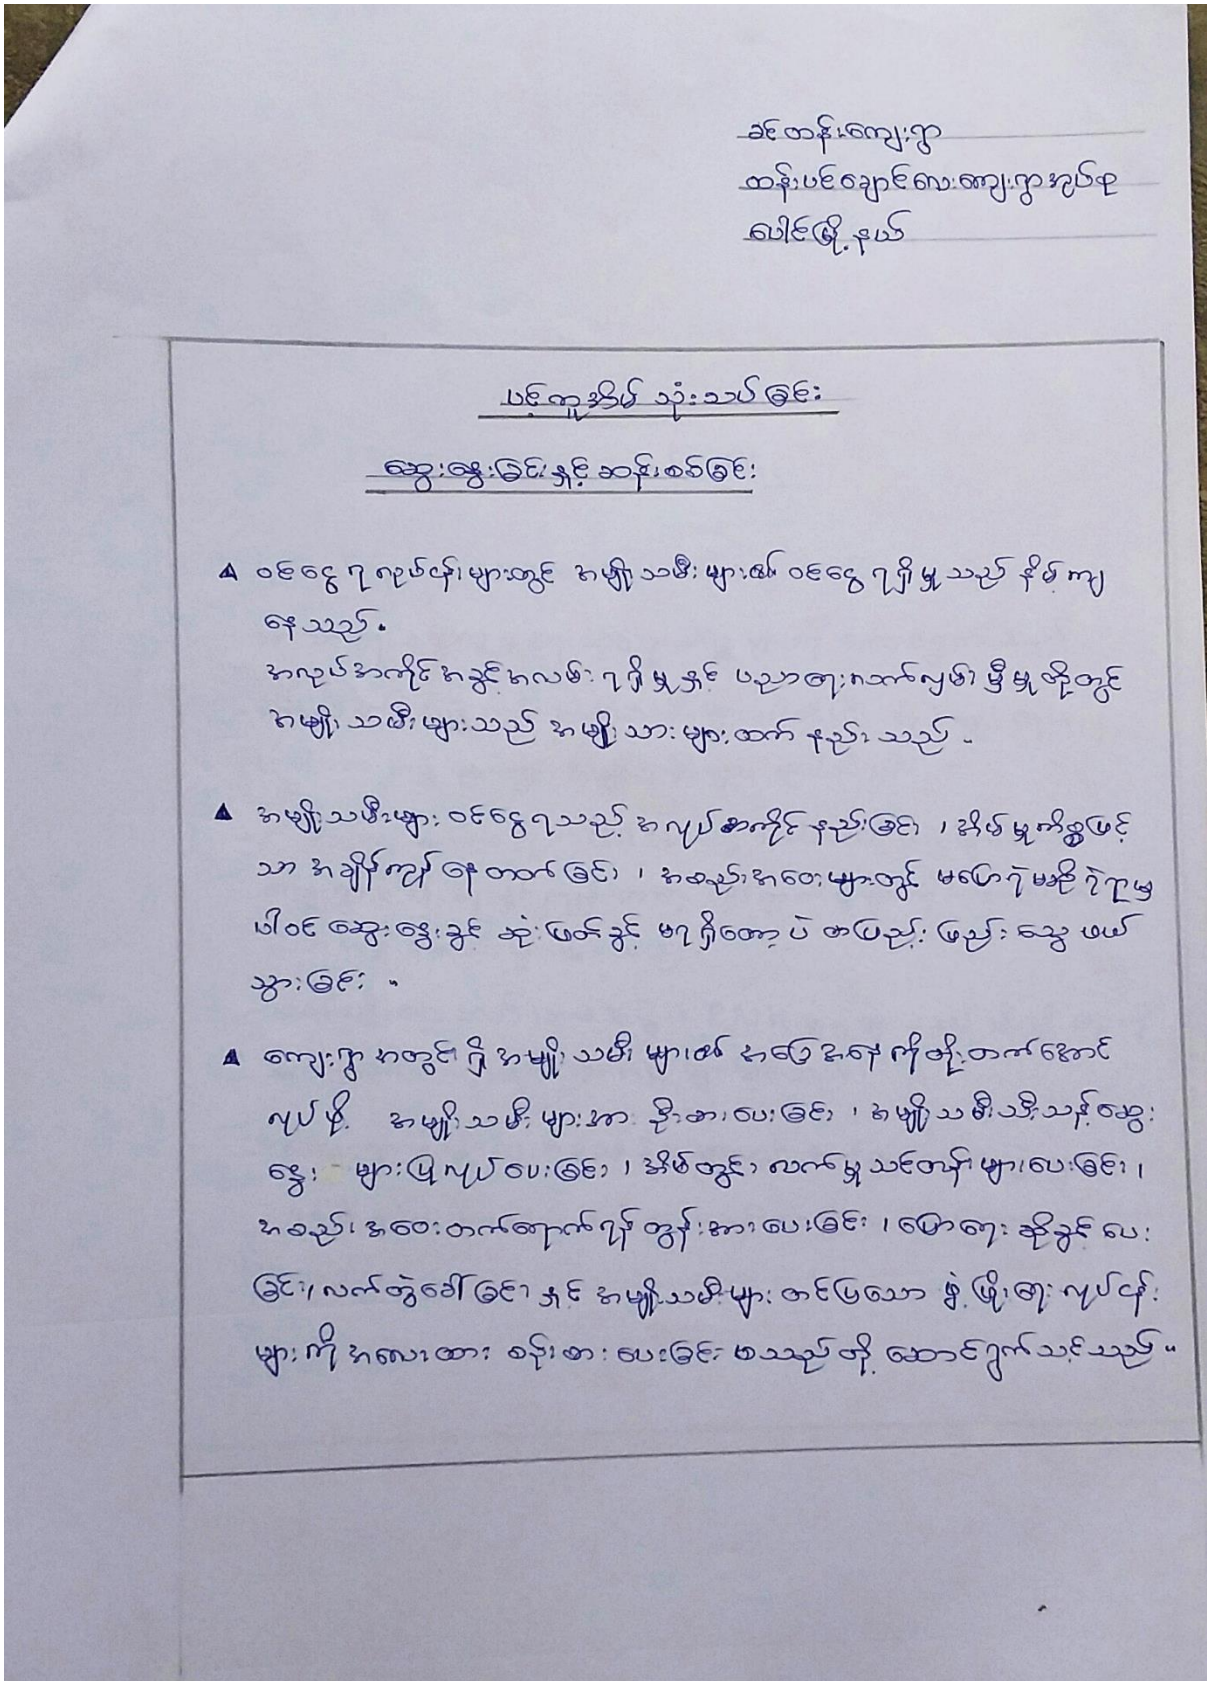 ခင်တန်းကျေးရွာ
ထန်းပင်ချောင်လေးကျေးရွာအုပ်စု
ပေါင်မြို့နယ်
ပင့်ကူအိမ် သုံးသပ်ခြင်း
ဆွေးနွေးခြင်းနှင့် ဆန်းစစ်ခြင်း
▲ ဝင်ငွေရလုပ်ငန်းများတွင် အမျိုးသမီးများ၏ ဝင်ငွေရရှိမှုသည် နိမ့်ကျ
နေသည်။
အလုပ်အကိုင်အခွင့်အလမ်းရရှိမှုနှင့် ပညာရေးလက်လှမ်းမှီမှုတို့တွင်
အမျိုးသမီးများသည် အမျိုးသားများထက် နည်းသည်။
▲ အမျိုးသမီးများ ဝင်ငွေရသည့် အလုပ်အကိုင်နည်းခြင်း၊ အိမ်မှုကိစ္စဖြင့်
သာ အချိန်ကုန်နေတတ်ခြင်း၊ အစည်းအဝေးများတွင် မပြောရဲမဆိုရဲမှု
ပါဝင်ဆွေးနွေးခွင့် ဆုံးဖြတ်ခွင့် မရရှိတော့ပဲ တပြည်းပြည်း သွေဖယ်
သွားခြင်း။
▲ ကျေးရွာအတွင်းရှိ အမျိုးသမီးများ၏ အခြေအနေကိုတိုးတက်အောင်
လုပ်ဖို့ အမျိုးသမီးများအား ဦးစားပေးခြင်း၊ အမျိုးသမီးသီးသန့်ဆွေး
နွေး များပြုလုပ်ပေးခြင်း၊ အိမ်တွင်းလက်မှုသင်တန်းများပေးခြင်း၊
အစည်းအဝေးတက်ရောက်ရန် တွန်းအားပေးခြင်း၊ ပြောရေးဆိုခွင့်ပေး
ခြင်း၊ လက်တွဲခေါ်ခြင်းနှင့် အမျိုးသမီးများ တင်ပြသော ဖွံ့ဖြိုးရေးလုပ်ငန်း
များကို အလေးထား စဉ်းစားပေးခြင်း စသည်တို့ ဆောင်ရွက်သင့်သည်။